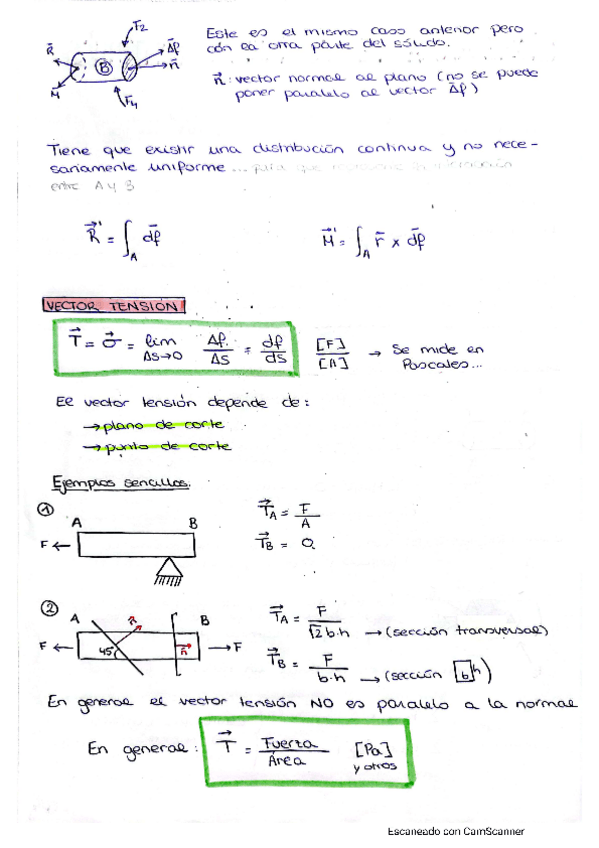 Este es el mismo caso anterior pero
con la otra parte del sólido.
R⃗ F₂ Δf⃗ n⃗ B M⃗ F₄
n⃗: vector normal al plano (no se puede
poner paralelo al vector Δf⃗)
Tiene que existir una distribución continua y no nece-
sariamente uniforme... para que
entre A y B
R⃗' = ∫_A df⃗
M⃗' = ∫_A r⃗ × df⃗
VECTOR TENSIÓN
T⃗ = σ⃗ = lim ΔS→0 Δf/ΔS = df/ds [F]/[A] → Se mide en
Pascales...
El vector tensión depende de:
→ plano de corte
→ punto de corte
Ejemplos sencillos.
① A B
F ←
T⃗_A = F/A
T⃗_B = 0
② A B
F ← 45° n⃗ n⃗ → F
T⃗_A = F/√2 b·h → (sección transversal)
T⃗_B = F/b·h → (sección b h)
En general el vector tensión NO es paralelo a la normal
En general: T⃗ = Fuerza/Área [Pa]
y otros
Escaneado con CamScanner